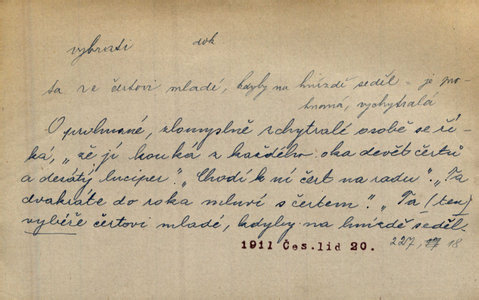 vybrati dok.
ta ve čertovi mladé, kdyby na hnízdě seděl - je pro-
hnaná, vychytralá
O prohnané, zlomyslně zchytralé osobě se ří-
ká, „že jí kouká z každého oka devět čertů
a desátý luciper". „Chodí k ní čert na radu". „Ta
dvakráte do roka mluví s čertem". „Ta (ten)
vybéře čertovi mladé, kdyby na hnízdě seděl.
1911 Čes. lid 20. 227, 18